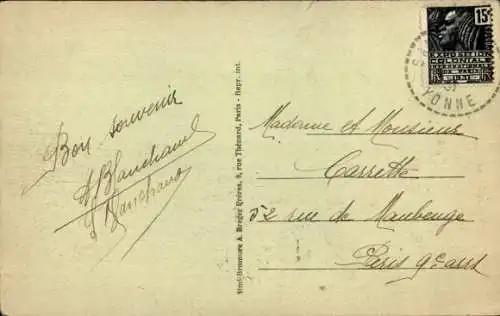 Bon souvenir
A Blanchard
Madame et Monsieur
Carrette
52 rue de Maubeuge
Paris 9e arrt
A. Breger Frères, 9, rue Thénard, Paris - Repr. int.
15c
EXPOSITION
COLONIALE
INTERNATIONALE
DE PARIS
1931
YONNE